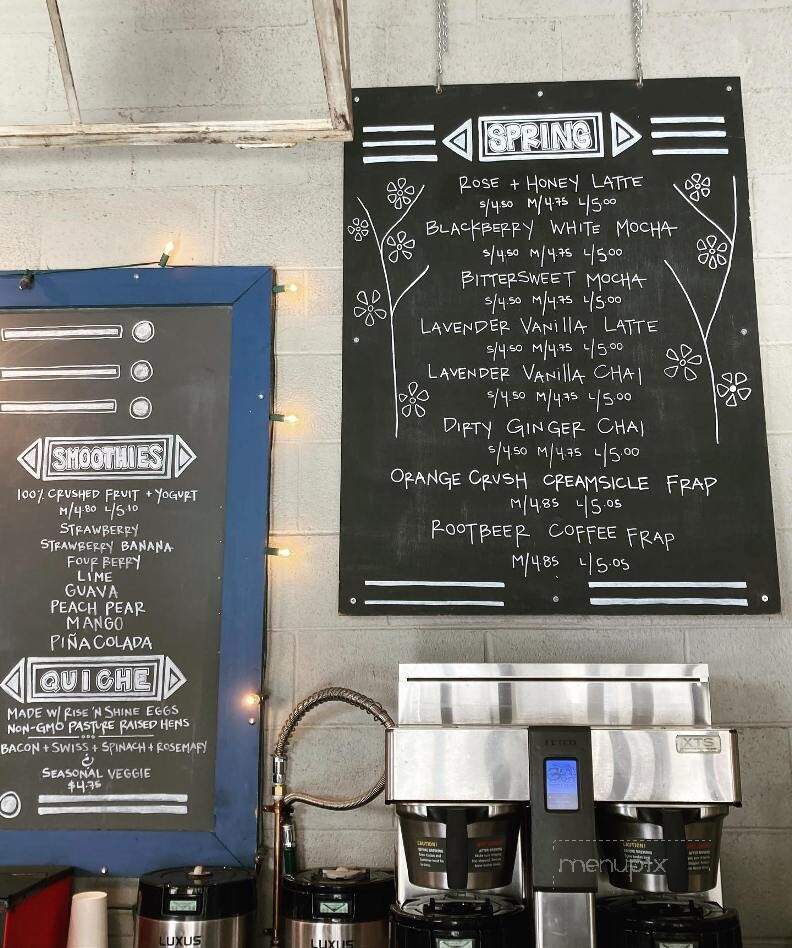 SPRING
ROSE + HONEY LATTE
S/4.50 M/4.75 L/5.00
BLACKBERRY WHITE MOCHA
S/4.50 M/4.75 L/5.00
BITTERSWEET MOCHA
S/4.50 M/4.75 L/5.00
LAVENDER VANILLA LATTE
S/4.50 M/4.75 L/5.00
LAVENDER VANILLA CHAI
S/4.50 M/4.75 L/5.00
DIRTY GINGER CHAI
S/4.50 M/4.75 L/5.00
ORANGE CRUSH CREAMSICLE FRAP
M/4.85 L/5.05
ROOTBEER COFFEE FRAP
M/4.85 L/5.05
SMOOTHIES
100% CRUSHED FRUIT + YOGURT
M/4.80 L/5.10
STRAWBERRY
STRAWBERRY BANANA
FOUR BERRY
LIME
GUAVA
PEACH PEAR
MANGO
PIÑA COLADA
QUICHE
MADE W/ RISE 'N SHINE EGGS
NON-GMO PASTURE RAISED HENS
BACON + SWISS + SPINACH + ROSEMARY
&
SEASONAL VEGGIE
$4.75
FETCO
XTS
CAUTION!
menupix
LUXUS
LUXUS